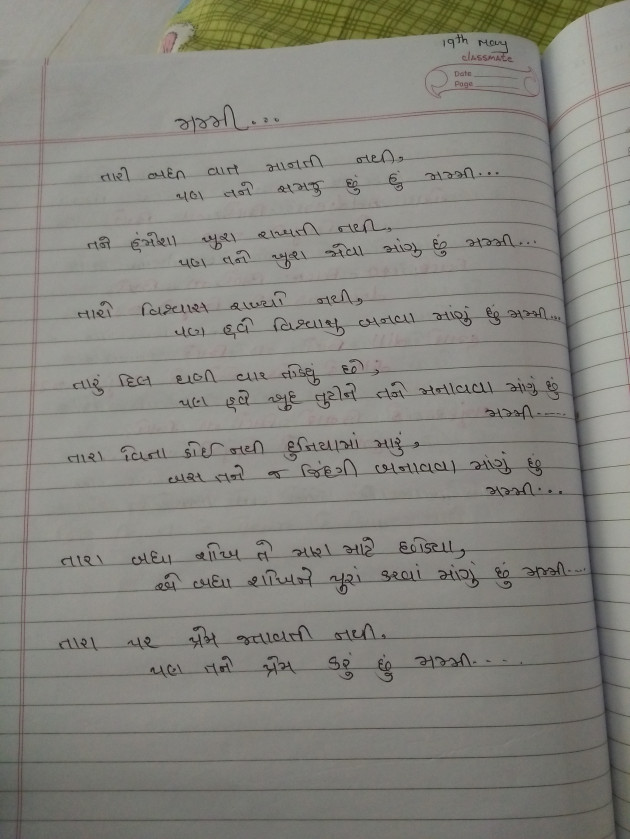 19th May
classmate
Date
Page
મમ્મી....
તારી બધી વાત માનતી નથી,
પણ તને સમજુ છું હું મમ્મી...
તને હંમેશા ખુશ રાખતી નથી,
પણ તને ખુશ જોવા માંગુ છું મમ્મી...
તારો વિશ્વાસ રાખ્યો નથી,
પણ હવે વિશ્વાસુ બનવા માંગું છું મમ્મી...
તારું દિલ ઘણી વાર તોડ્યું હશે,
પણ હવે ખુદ તુટીને તને મનાવવા માંગું છું
મમ્મી.....
તારા વિના કોઈ નથી દુનિયામાં મારું,
બસ તને જ જિંદગી બનાવવા માંગું છું
મમ્મી...
તારા બધા શોખ તે મારા માટે છોડ્યા,
એ બધા શોખને પુરાં કરવાં માંગું છું મમ્મી....
તારા પર પ્રેમ જતાવતી નથી.
પણ તને પ્રેમ કરું છું મમ્મી.....